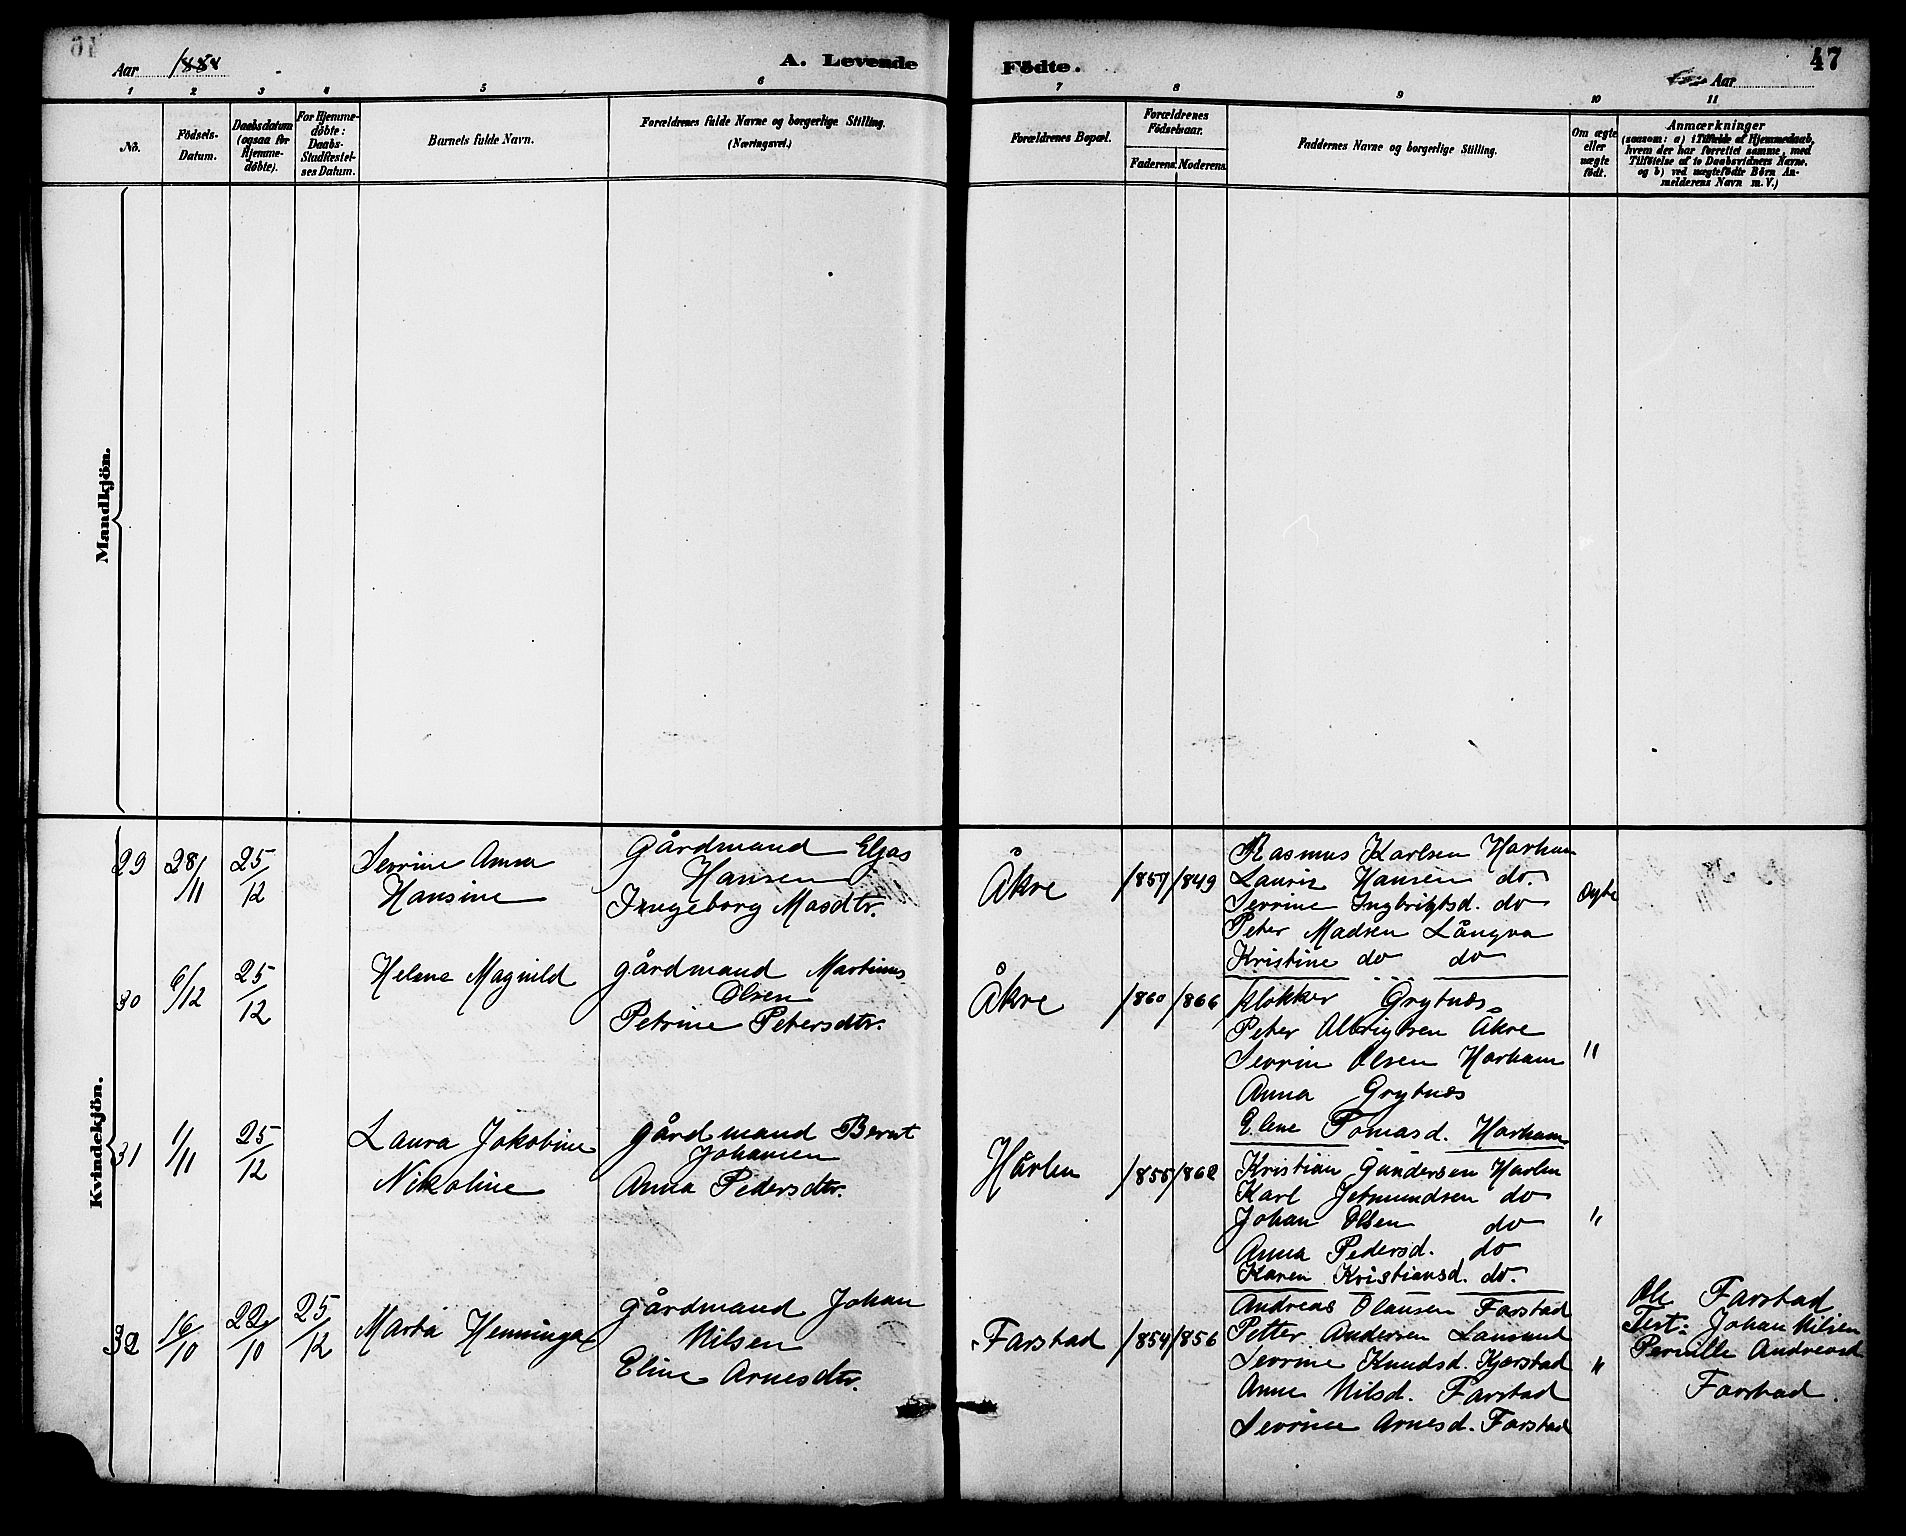 Aar 1888
A. Levende
Födte.
Aar
47
1 2 3 4 5 6 7 8 9 10 11
Nö.
Födsels-
Datum.
Daabsdatum
(ogsaa for
Hjemme-
döbte).
For Hjemme-
döbte:
Daabs-
Stadfæstel-
ses Datum.
Barnets fulde Navn.
Forældrenes fulde Navne og borgerlige Stilling.
(Næringsvei.)
Forældrenes Bopæl.
Forældrenes
Födselsaar.
Faderens. Moderens.
Faddernes Navne og borgerlige Stilling.
Om ægte
eller
uægte
födt.
Anmærkninger
(saasom: a) i Tilfælde af Hjemmedaab,
hvem der har forrettet samme, med
Tilföielse af to Daabsvidners Navne.
og b) ved uægtefödte Börn An-
melderens Navn m. V.)
Mandkjön.
Kvindekjön.
29 28/11 25/12
Sevrine Anna
Hansine
Gårdmand Eljas
Hansen
Ingeborg Masdtr.
Åkre
1857 1849
Rasmus Karlsen Harham
Lauris Hansen do.
Sevrine Ingbrigtsd. do
Peter Madsen Långva
Kristine do do
Ægte
30 6/12 25/12
Helene Magnild
gårdmand Martinus
Olsen
Petrine Petersdtr.
Åkre
1860 1866
Klokker Grytnes
Peter Albrigtsen Åkre
Sevrin Olsen Harham
Anna Grytnes
Elene Tomasd. Harham
"
31 1/11 25/12
Laura Jakobine
Nikoline
gårdmand Bernt
Johansen
Anna Pedersdtr.
Hårlen
1855 1862
Kristian Gundersen Harlen
Karl Jetmundsen do
Johan Olsen do
Anna Pedersd. do
Karen Kristiansd. do.
"
32 16/10 22/10 25/12
Marta Henninga
gårdmand Johan
Nilsen
Eline Arnesdtr.
Farstad
1854 1856
Andreas Olausen Farstad
Petter Andersen
Sevrine Knudsd. Kjerstad
Anne Nilsd. Farstad
Sevrine Arnesd. Farstad
"
Ole Farstad
Test: Johan Nilsen
Pernille Andreasd
Farstad.